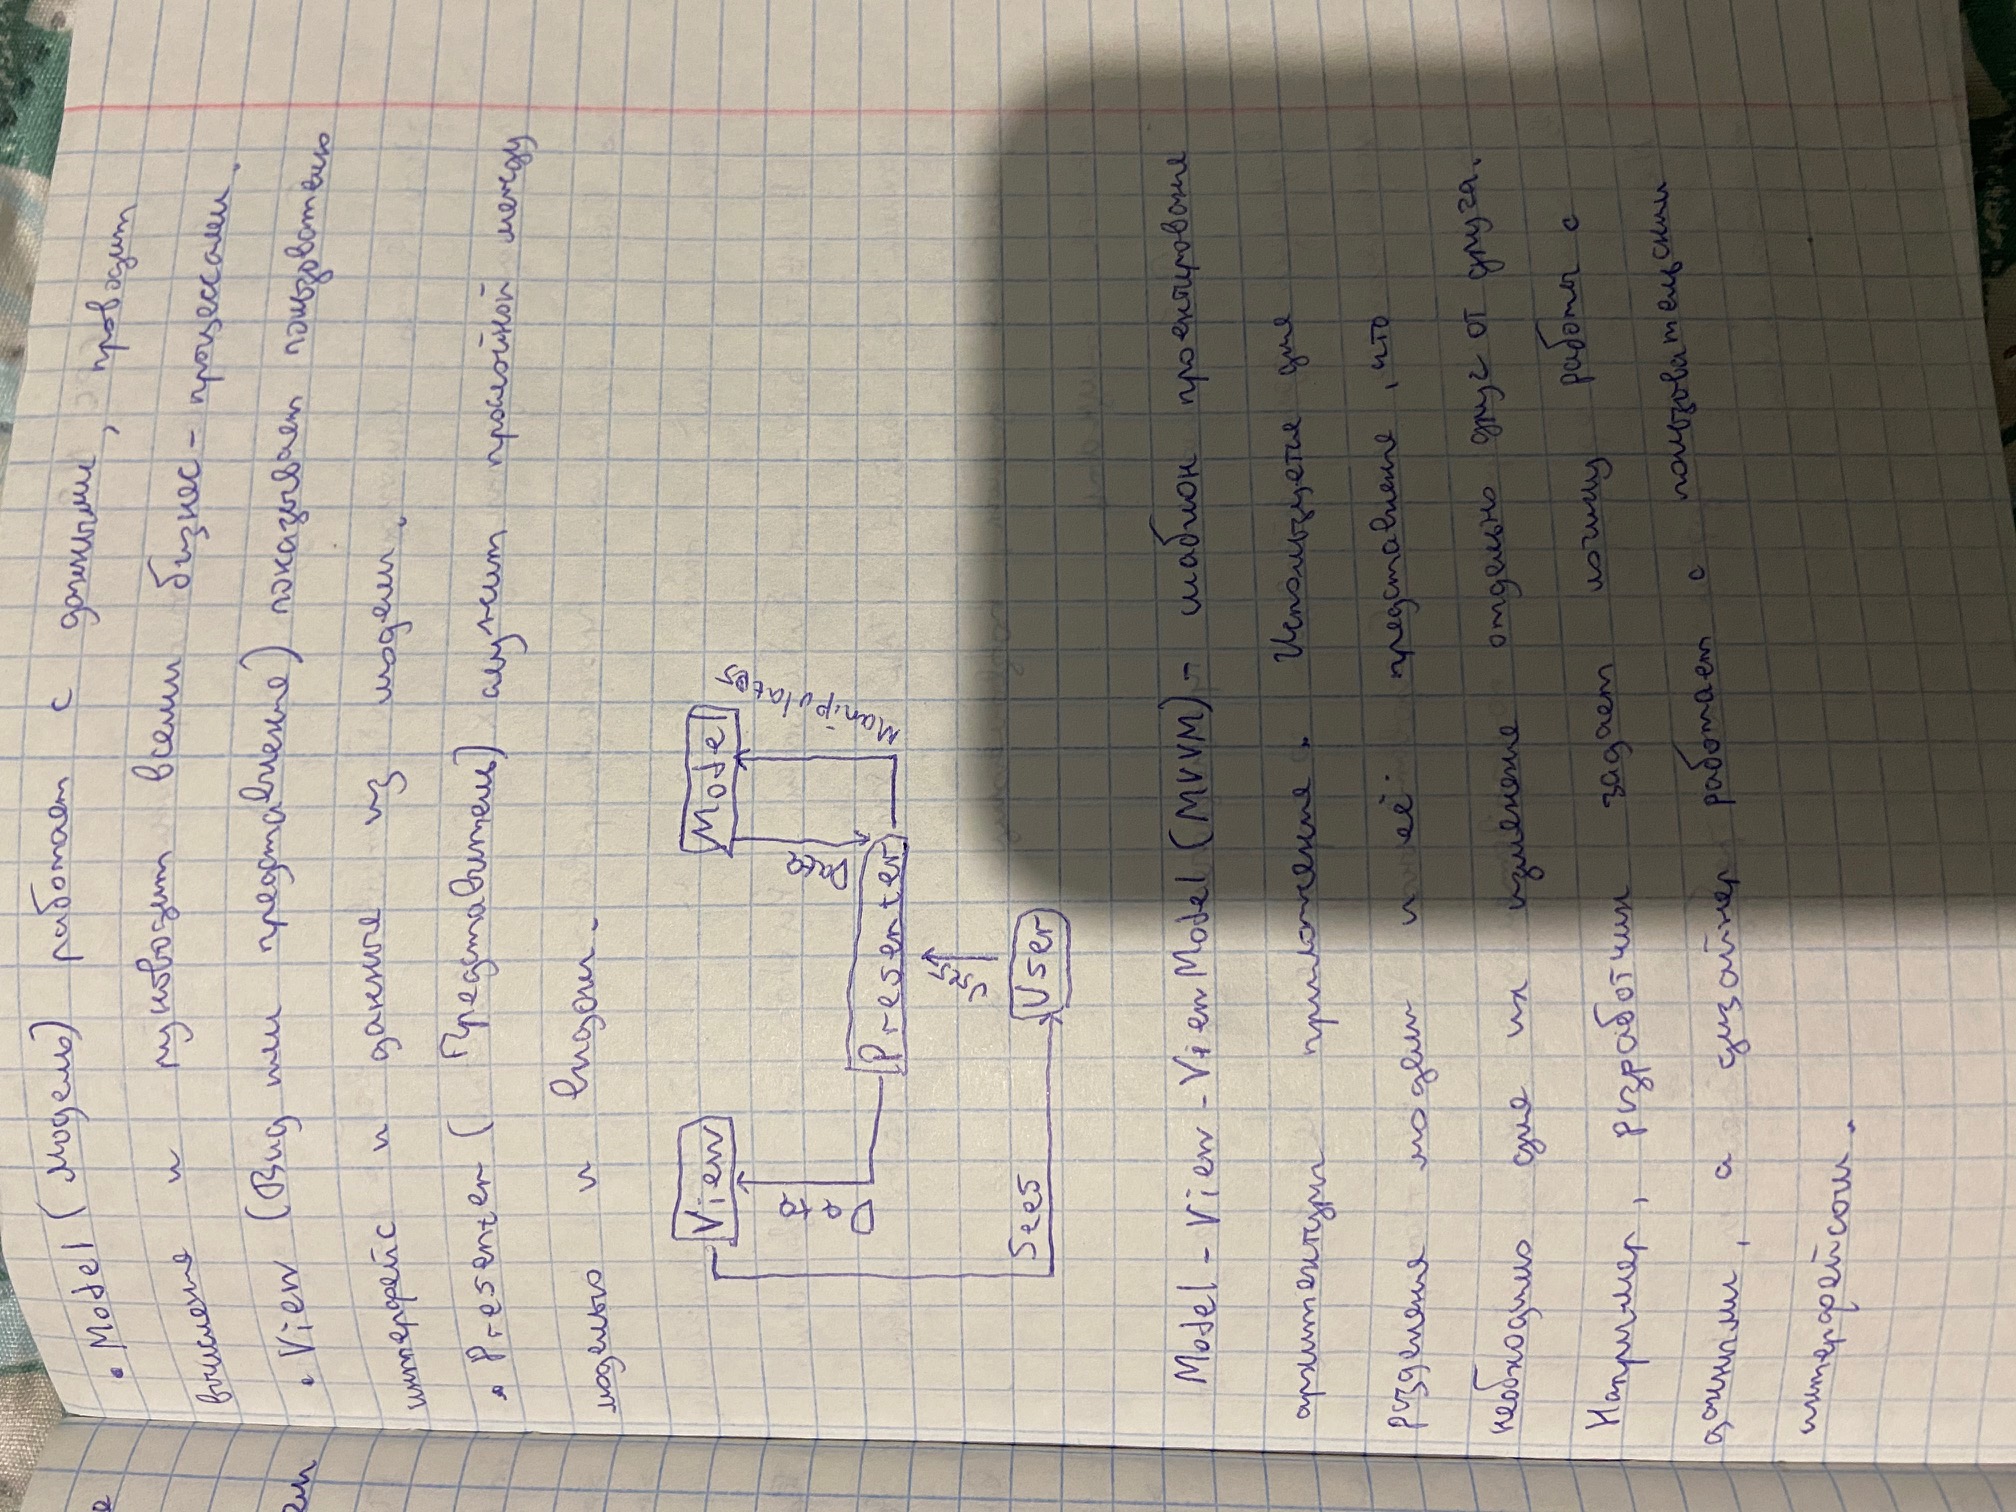 е
ем
• Model (Модель) работает с данными, проводит
вычисления и руководит всеми бизнес-процессами.
• View (Вид или представление) показывает пользователю
интерфейс и данные из модели.
• Presenter (Представитель) служит прослойкой между
моделью и видом.
View
Model
Data
Data
Manipulates
Presenter
Uses
Sees
User
Model-View-ViewModel (MVVM) - шаблон проектирования
архитектуры приложения. Используется для
разделения модели и её представления, что
необходимо для их изменения отдельно друг от друга.
Например, разработчик задает логику работы с
данными, а дизайнер работает с пользовательским
интерфейсом.